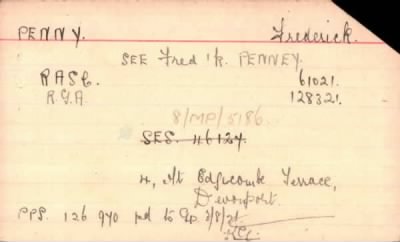 PENNY. Frederick.
SEE Fred'k. PENNEY.
RASC. 61021.
R.G.A 128321.
8/MP/5186.
SES. 46127.
4, Mt Edgcombe Terrace,
Devonport.
PPS. 126 970 pd to Gp. 3/8/21.